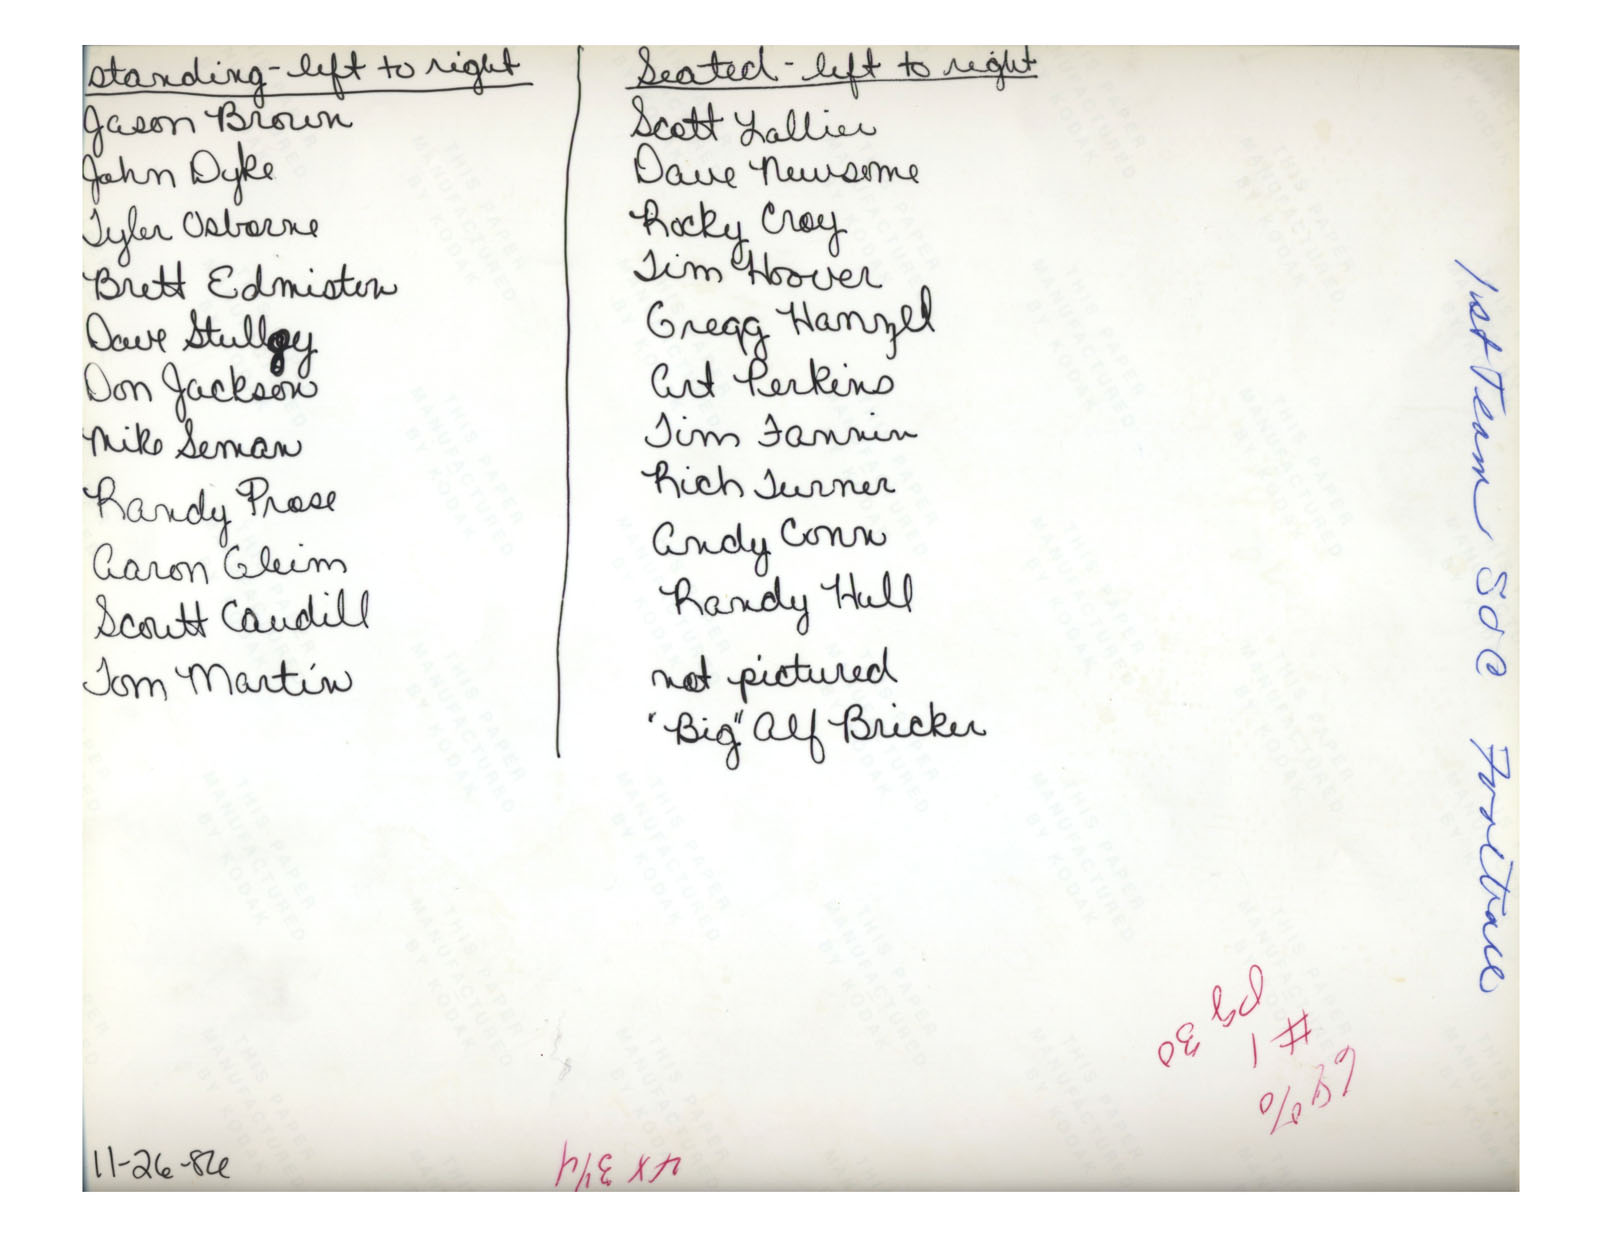 standing-left to right
Jason Brown
John Dyke
Tyler Osborne
Brett Edmiston
Dave
Don Jackson
Mike Seman
Randy Prose
Aaron Gleim
Scoutt Caudill
Tom Martin
Seated-left to right
Scott Lallier
Dave Newsome
Rocky Croy
Tim Hoover
Gregg Hanzel
Art Perkins
Tim Fannin
Rich Turner
Andy Conn
Randy Hull
not pictured
"Big" Alf Bricker
1st Team SOC
pg 30
# 1
%
11-26-86
4 x 3 1/4
THIS PAPER
MANUFACTURED
BY KODAK